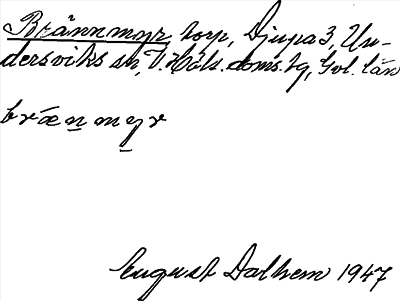 Brännmyr torp, Djupa 3, Un-
dersviks sn, V. Häls. doms. tg, Gvl. län
bræn myr
August Dalhem 1947